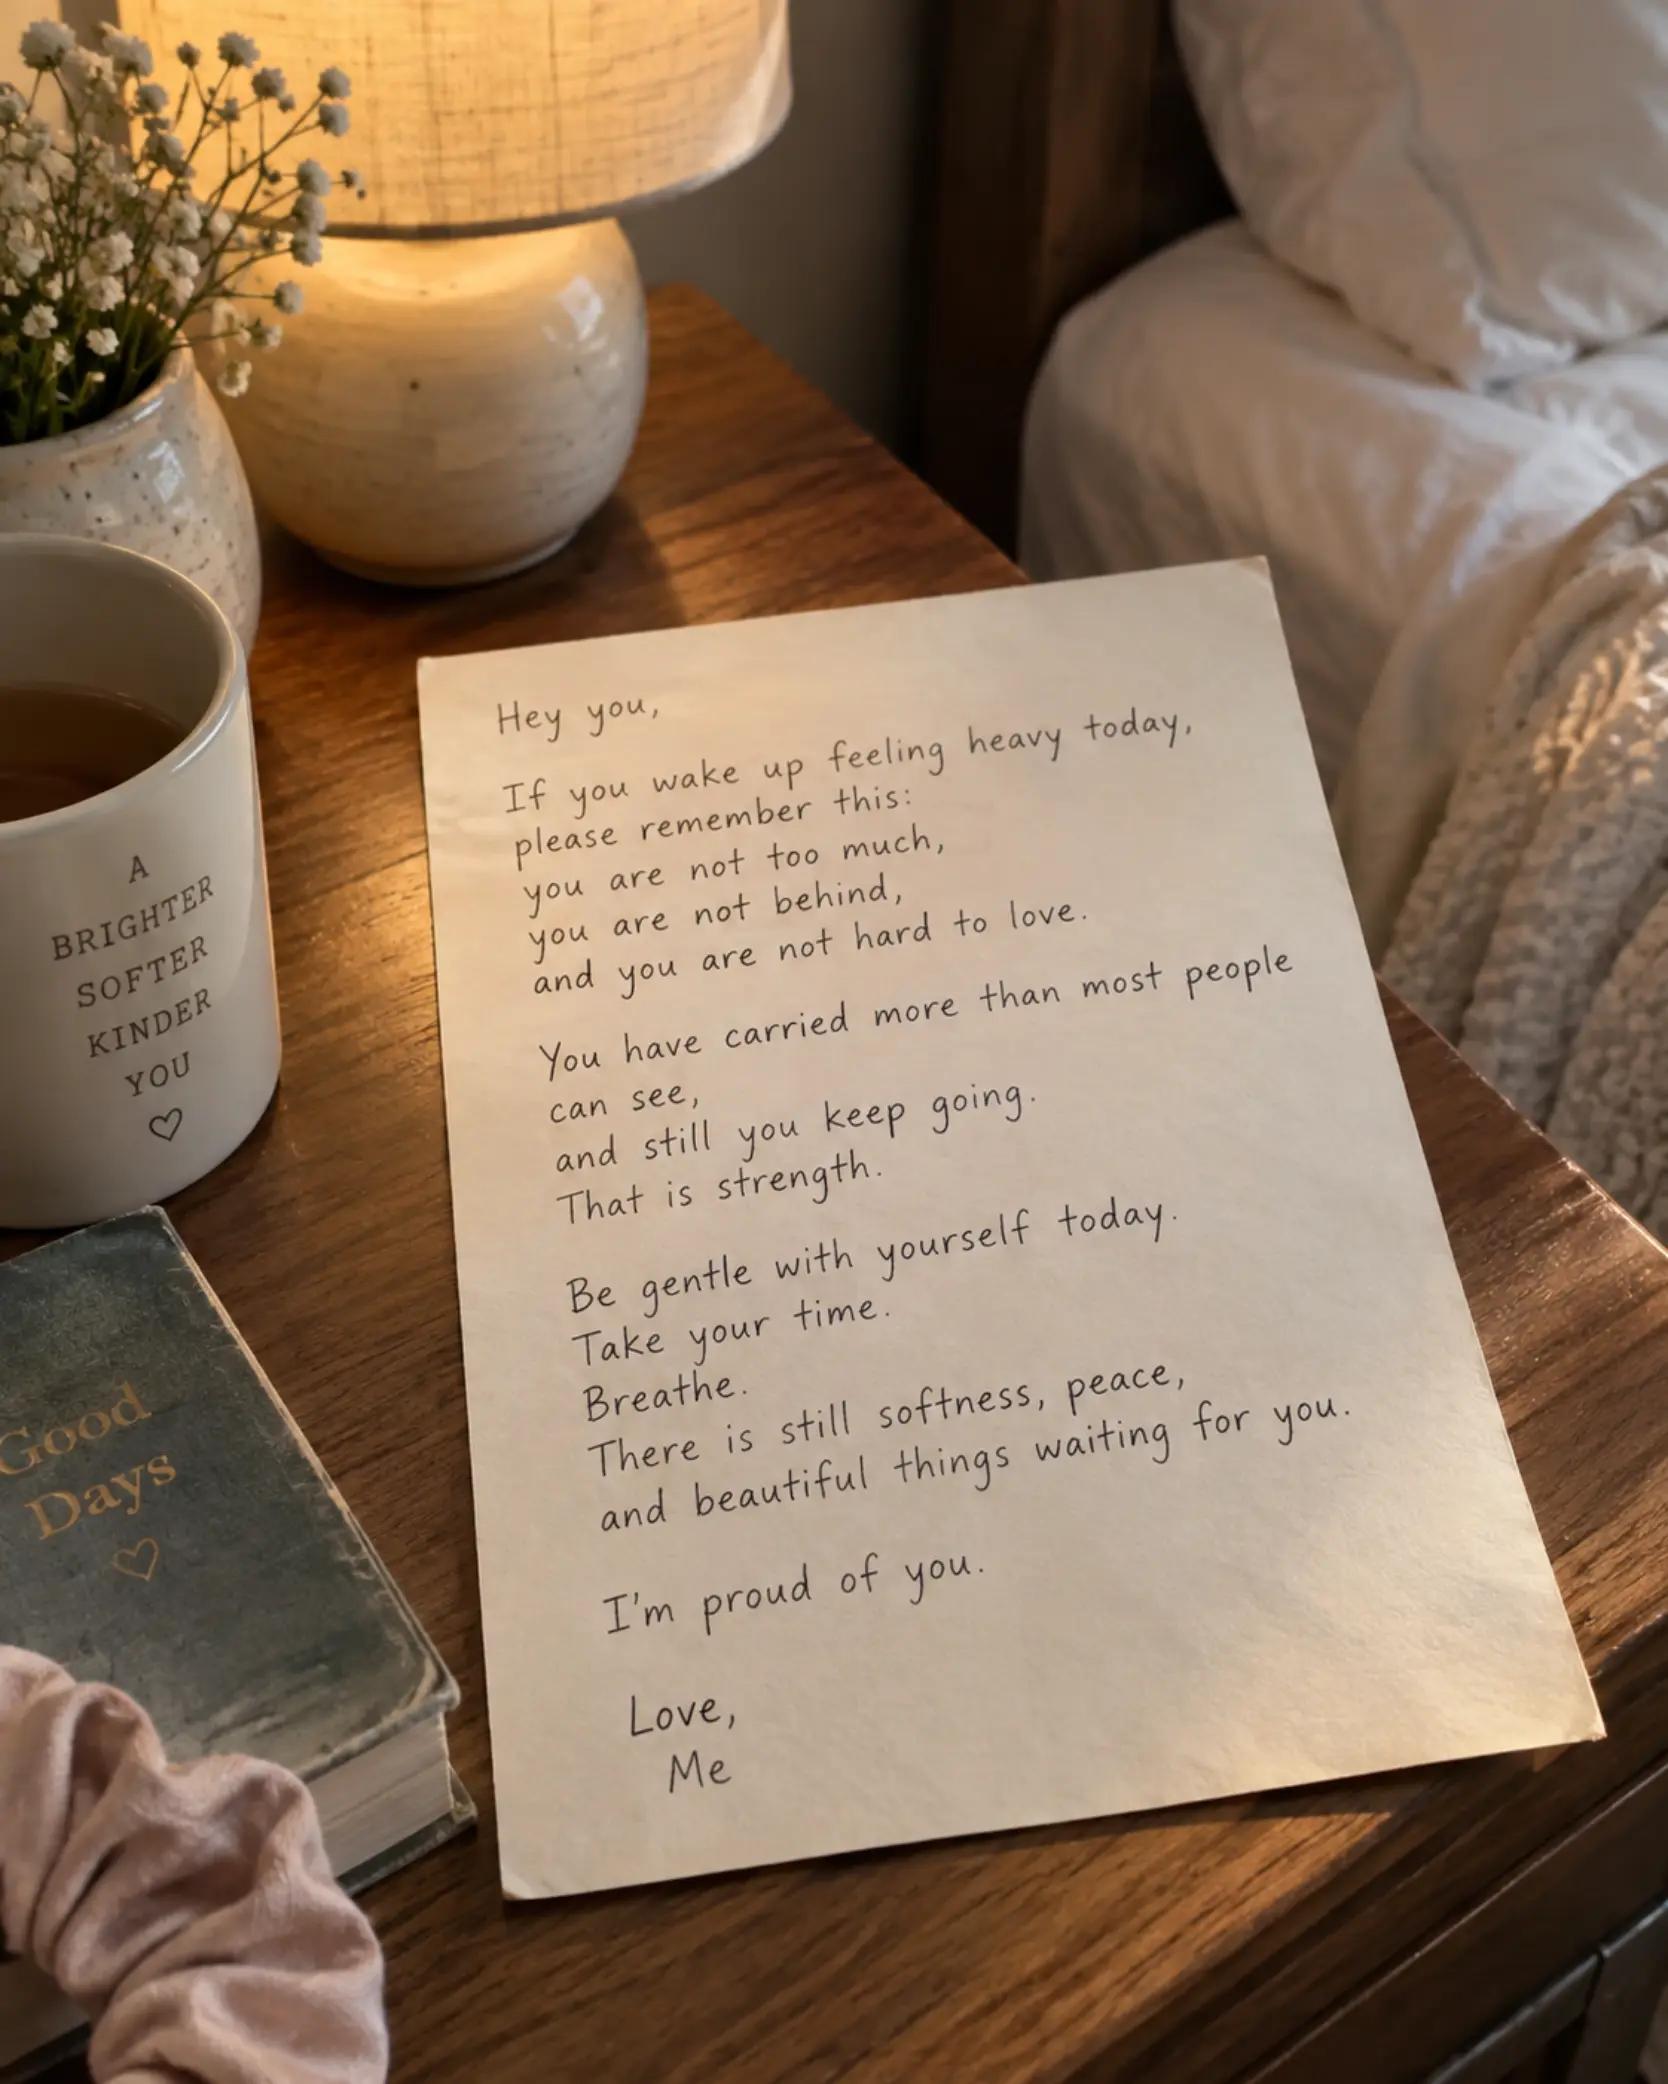 A
BRIGHTER
SOFTER
KINDER
YOU
Good
Days
Hey you,
If you wake up feeling heavy today,
please remember this:
you are not too much,
you are not behind,
and you are not hard to love.
You have carried more than most people
can see,
and still you keep going.
That is strength.
Be gentle with yourself today.
Take your time.
Breathe.
There is still softness, peace,
and beautiful things waiting for you.
I'm proud of you.
Love,
Me